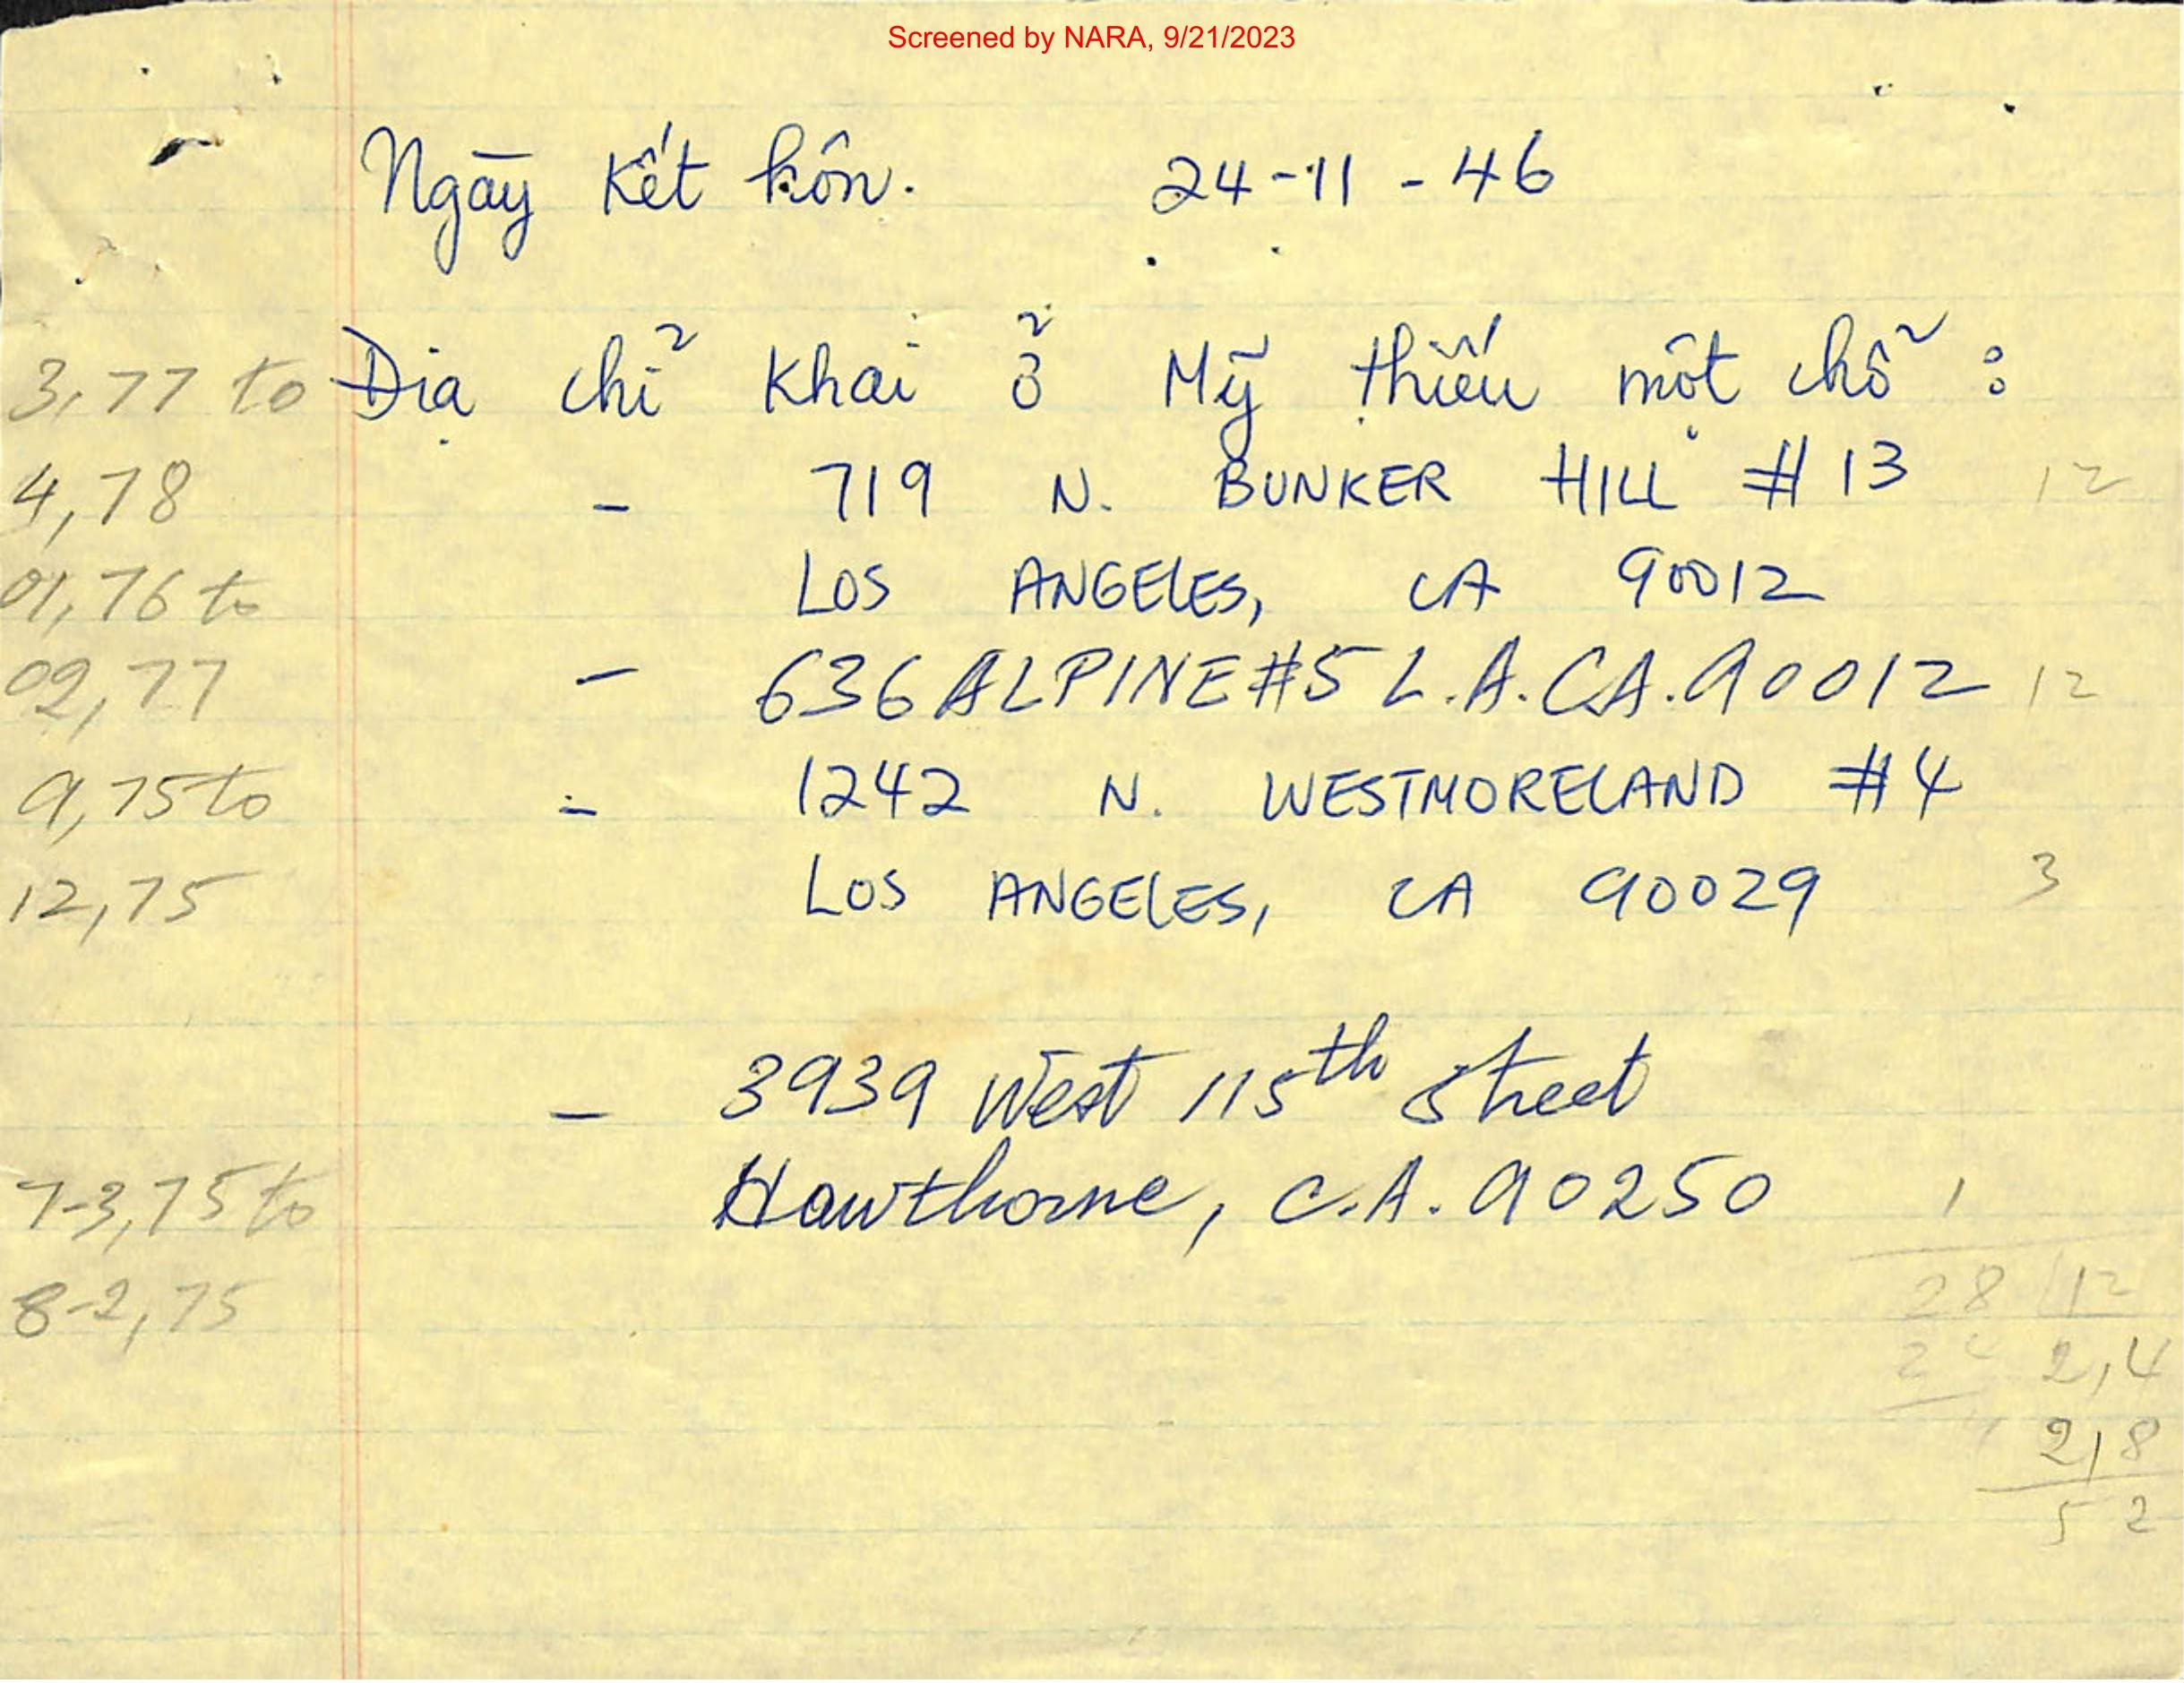 Screened by NARA, 9/21/2023
Ngày kết hôn. 24-11-46
3,77 to Địa chỉ khai ở Mỹ thiếu một chỗ :
4,78 - 719 N. BUNKER HILL #13 12
01,76 to LOS ANGELES, CA 90012
02,77 - 636 ALPINE #5 L.A. CA. 90012 12
9,75 to - 1242 N. WESTMORELAND #4
12,75 LOS ANGELES, CA 90029 3
- 3939 West 115th Street
7-3,75 to Hawthorne, C.A. 90250 1
8-2,75 28 12
24 2,4
4 2,8
5 2